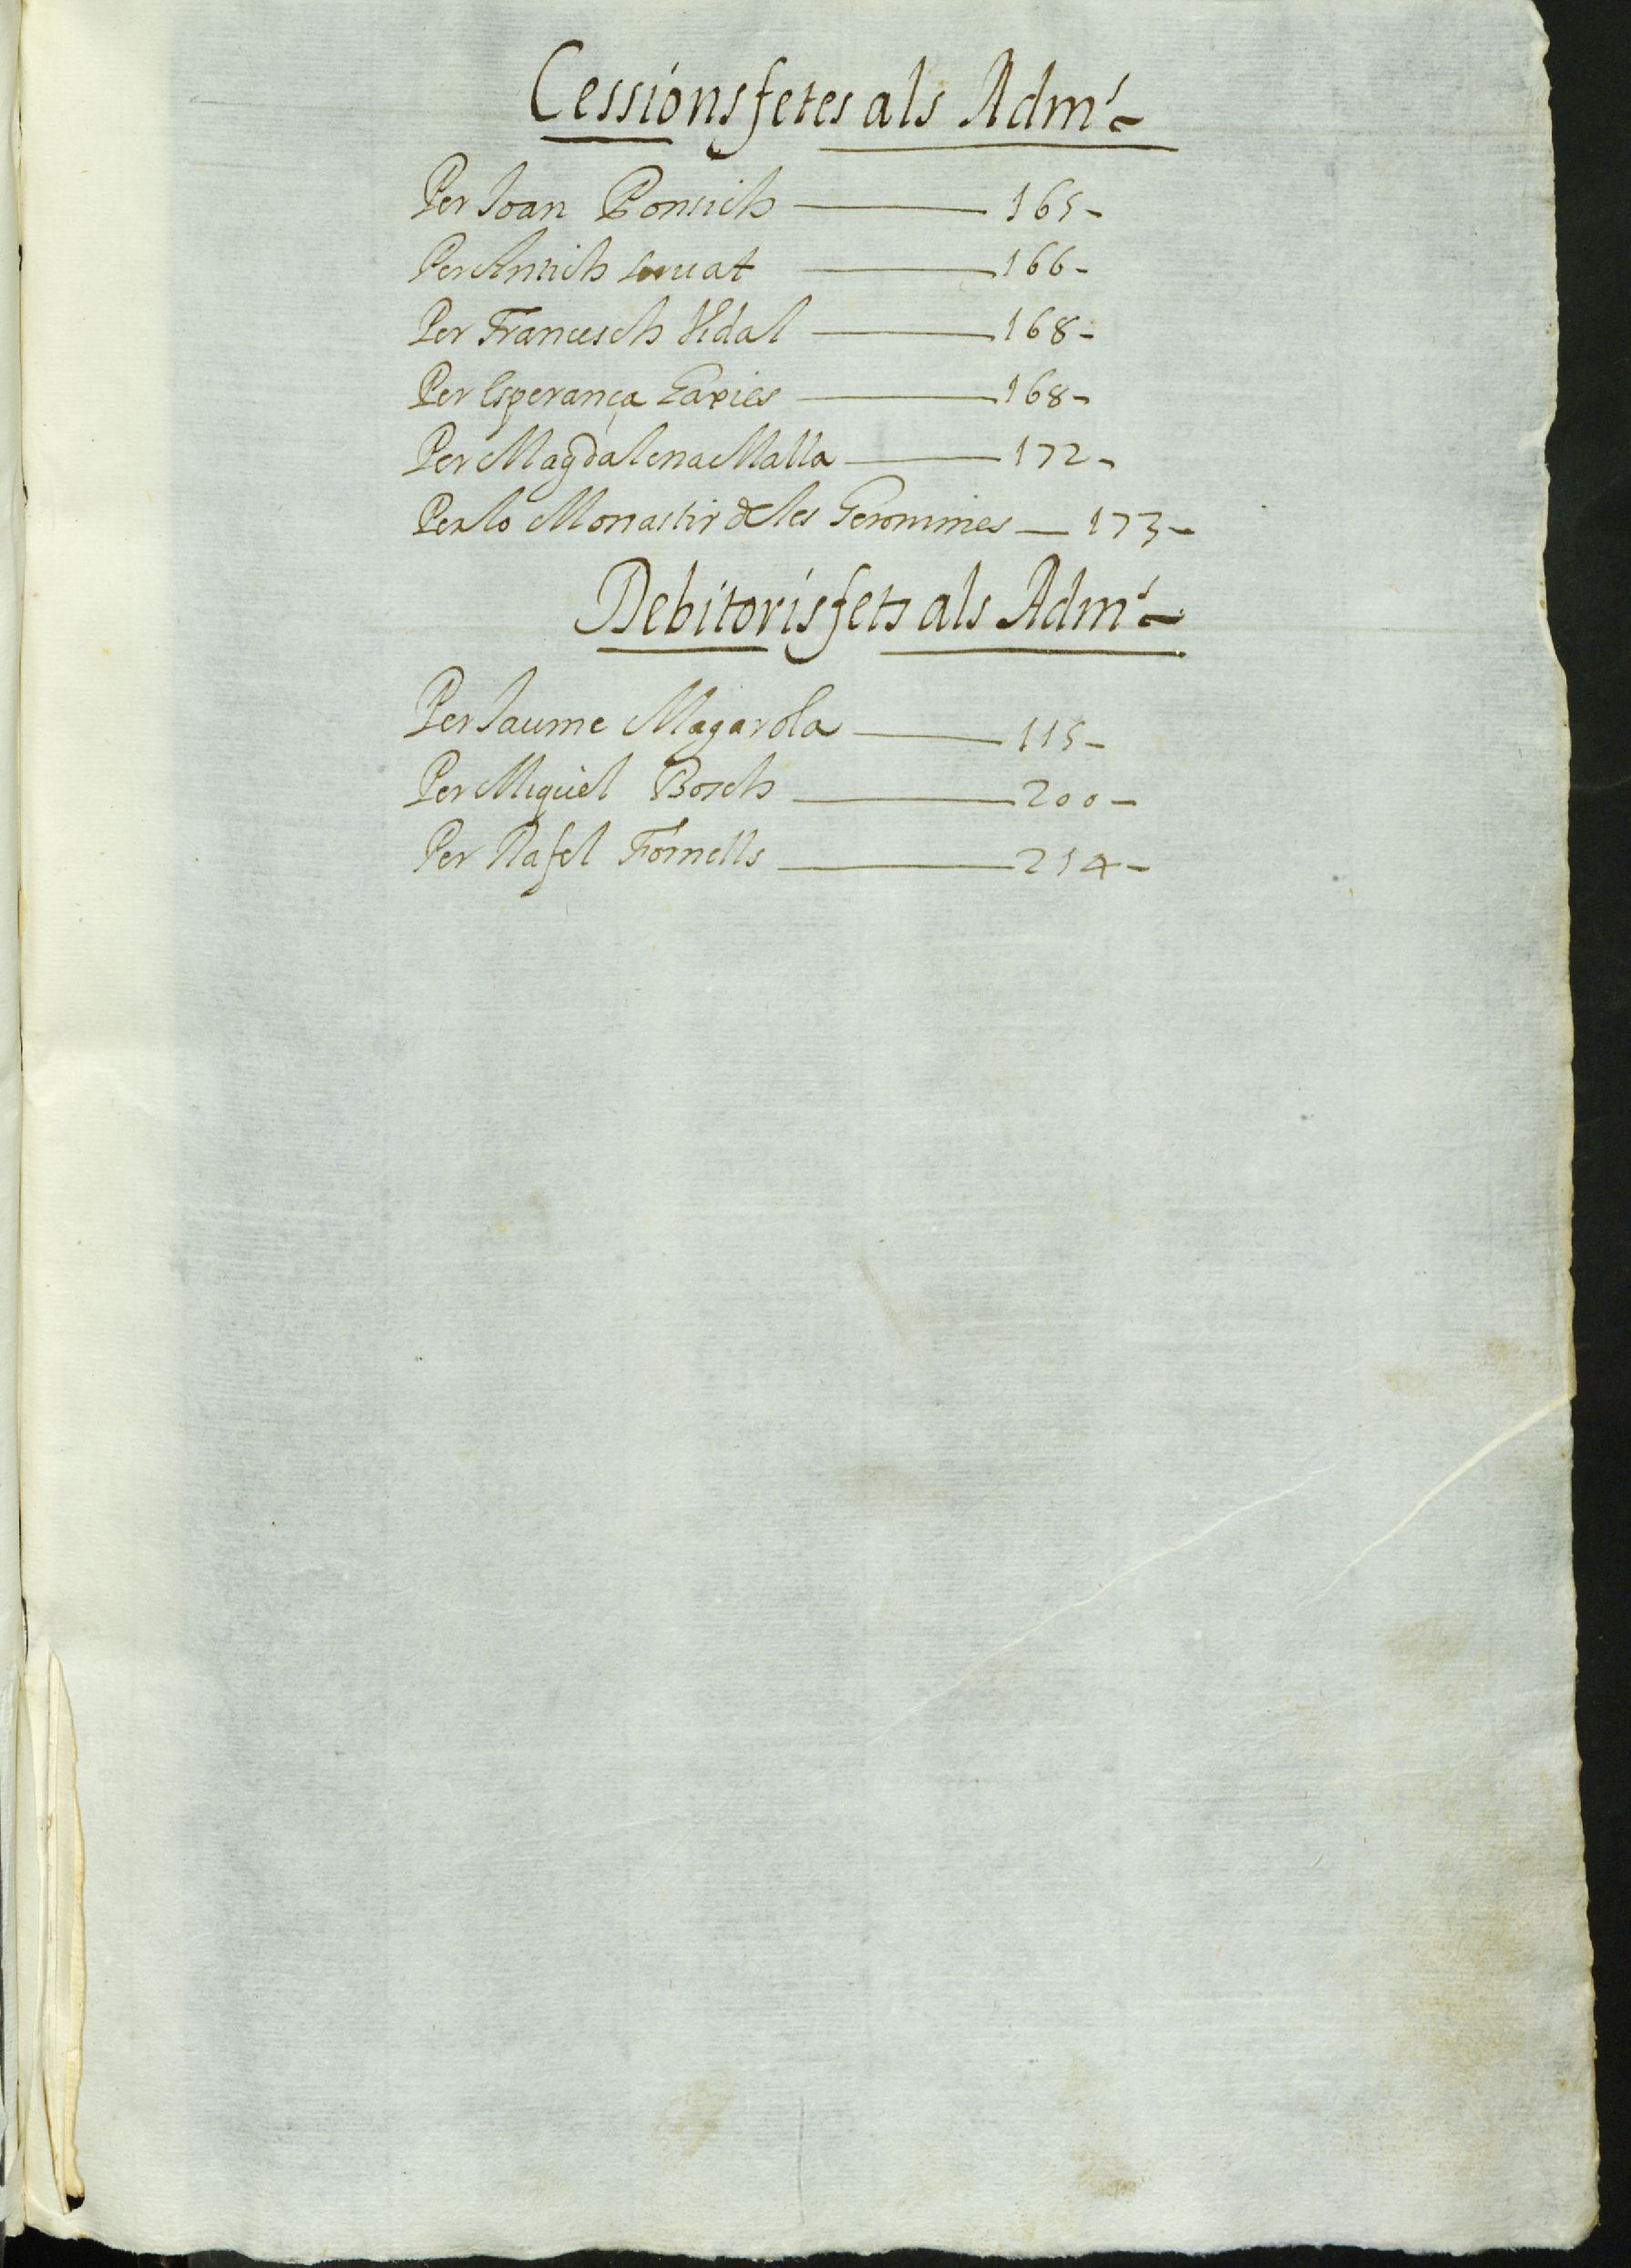 Cessions fetes als Adm.ˢ
Per Joan Ponsich — 165-
Per Antich — 166-
Per Francesch Vidal — 168-
Per Esperança — 168-
Per Magdalena Malla — 172-
Per lo Monastir de les Geronimes — 173-
Debitoris fets als Adm.ˢ
Per Jaume Magarola — 115-
Per Miquel Bosch — 200-
Per Rafel Fornells — 214-